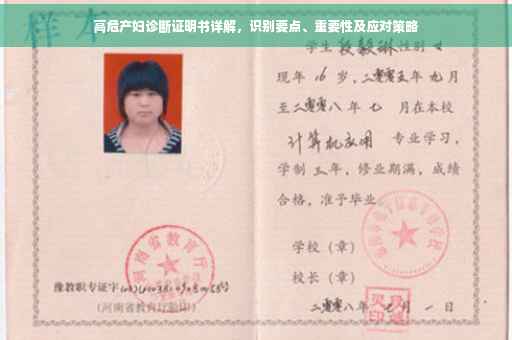 高危产妇诊断证明书详解，识别要点、重要性及应对策略
样本
学生段毅琳性别女
现年16岁，二零零五年九月
至二零零八年七月在本校
计算机应用专业学习，
学制三年，修业期满，成绩
合格，准予毕业。
学校（章）
校长（章）
二零零八年 月一日
河南省教育厅
豫教职专证字
（河南省教育厅验印）